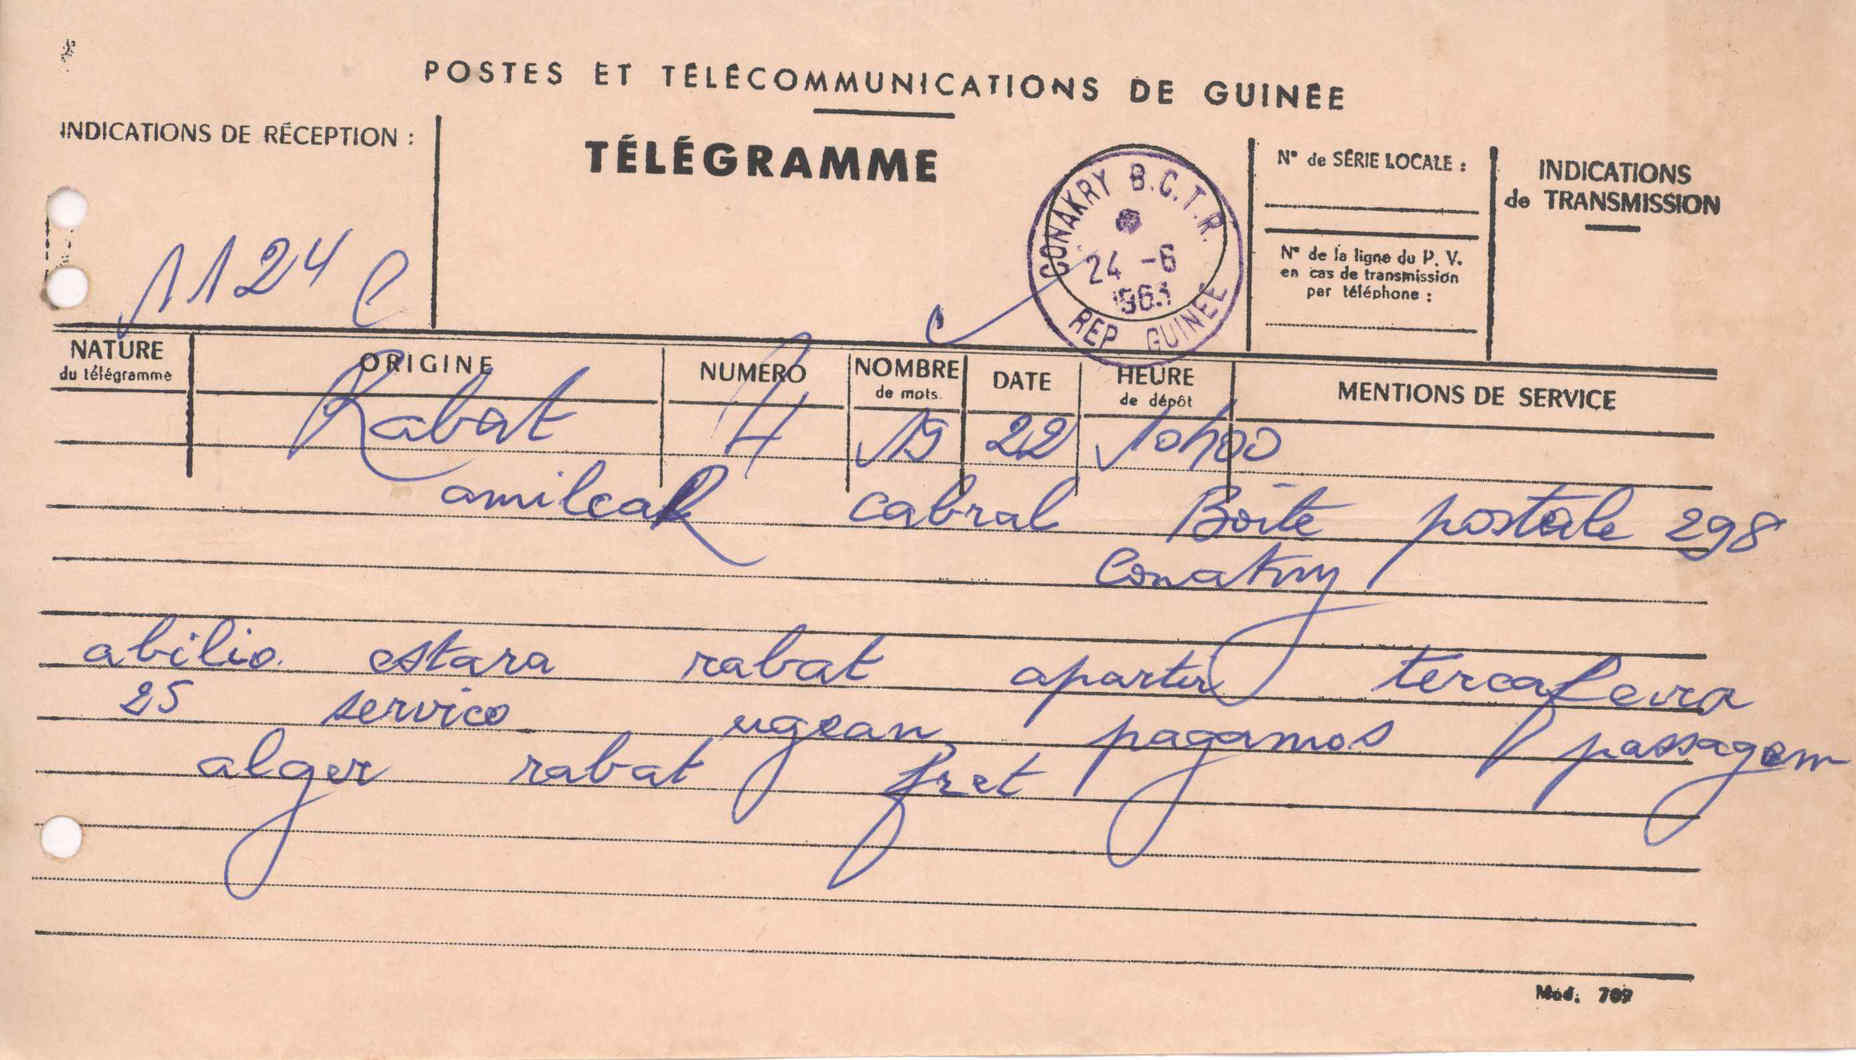 POSTES ET TÉLÉCOMMUNICATIONS DE GUINÉE
INDICATIONS DE RÉCEPTION :
TÉLÉGRAMME
CONAKRY B.C.T.R.
24 -6
1963
REP GUINEE
N° de SÉRIE LOCALE :
N° de la ligne du P. V.
en cas de transmission
par téléphone :
INDICATIONS
de TRANSMISSION
1124
NATURE
du télégramme
ORIGINE
NUMERO
NOMBRE
de mots.
DATE
HEURE
de dépôt
MENTIONS DE SERVICE
Rabat 19 22 10h00
amilcaR cabral Boite postale 298
Conakry
abilio estara rabat apartir tercafeira
25 servico ugean pagamos passagem
alger rabat fret
Mod. 709